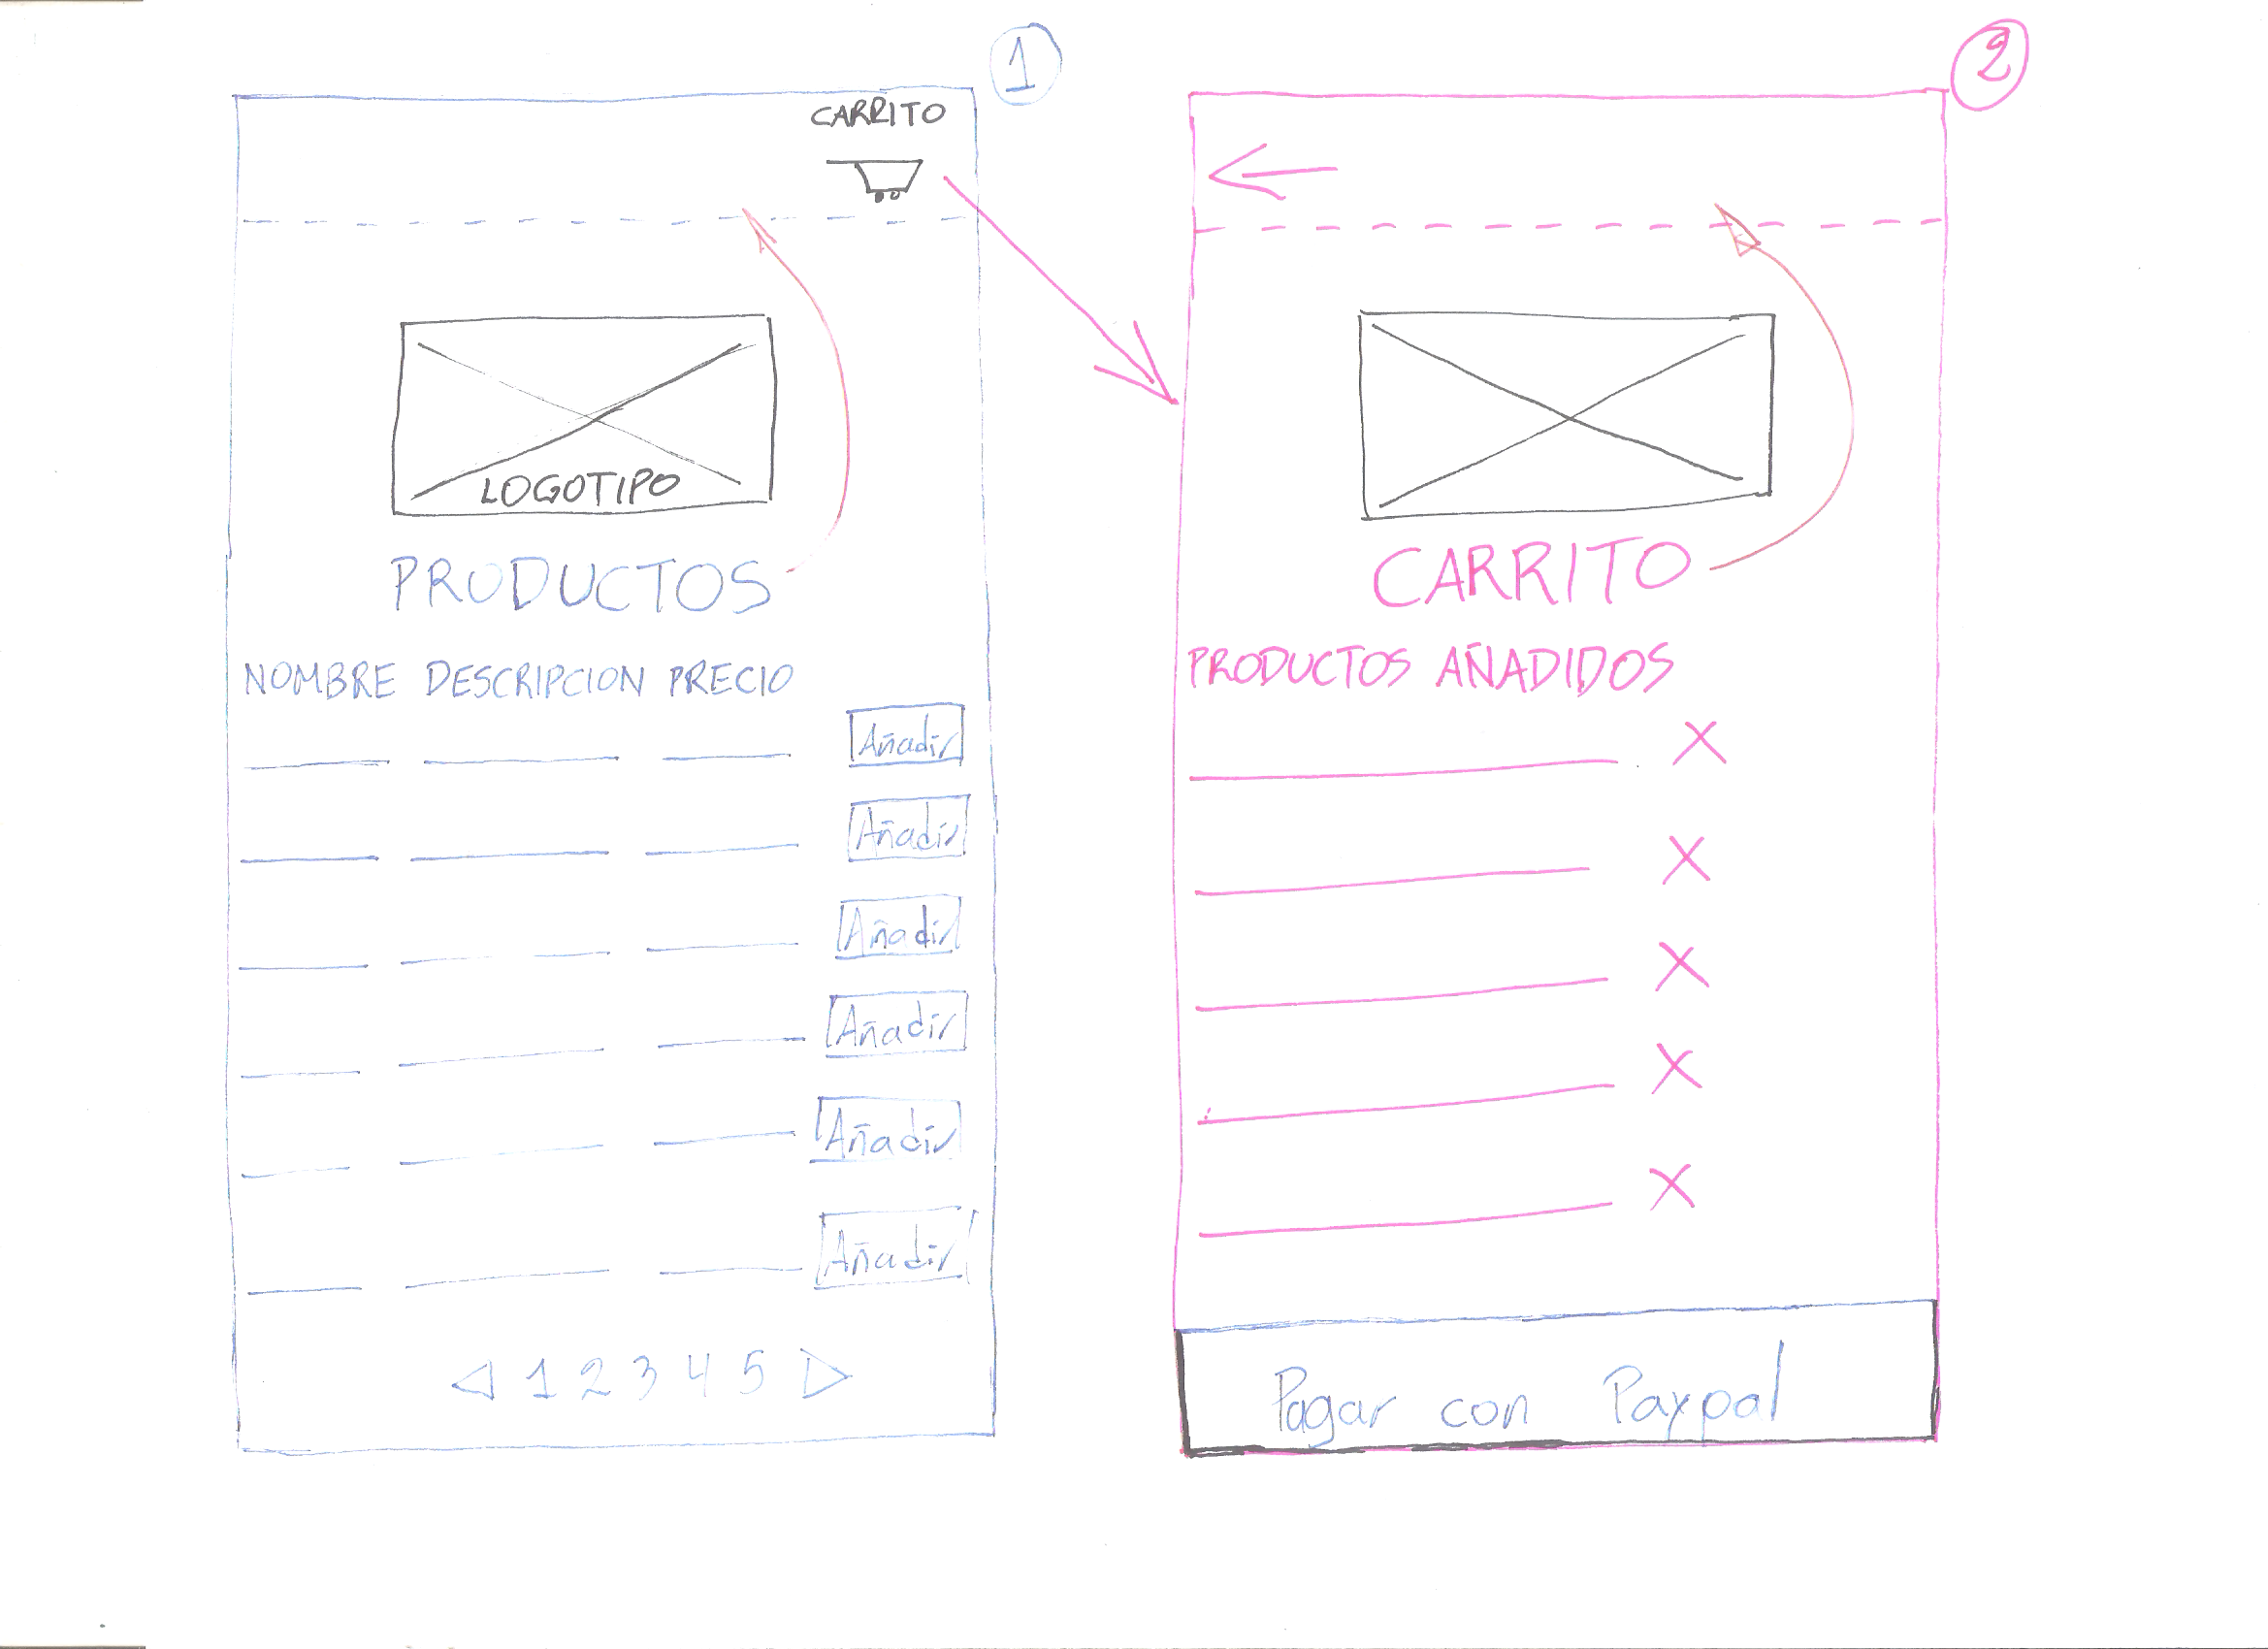 1
CARRITO
LOGOTIPO
PRODUCTOS
NOMBRE DESCRIPCION PRECIO
Añadir
Añadir
Añadir
Añadir
Añadir
Añadir
1 2 3 4 5
2
CARRITO
PRODUCTOS AÑADIDOS
X
X
X
X
X
Pagar con Paypal